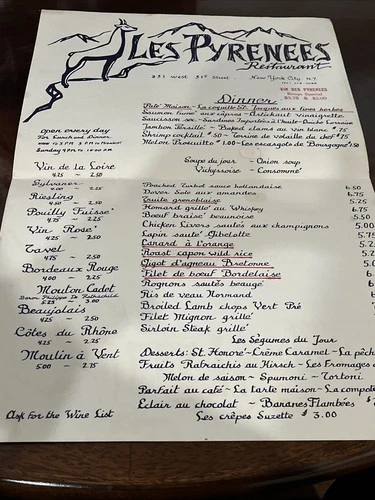 LES PYRENEES
Restaurant
251 West 51st Street New York City N.Y.
VIN DES PYRENEES
Dinner
Pate Maison - La coquille St. Jacques aux fines herbes
Saumon fumé aux câpres - Artichaut vinaigrette
Saucisson sec - Sardines Importées à l'huile - Quiche Lorraine
Jambon Persillé - Baked clams au vin blanc $.75
Shrimp cocktail $.50 - Terrine de volaille du chef $.75
Melon Prosciutto $1.00 - Les escargots de Bourgogne $1.50
open every day
For Lunch and Dinner
Soupe du jour - Onion soup
Vichyssoise - Consommé
Vin de la Loire
4.25 ~ 2.50
Sylvaner
4.25 ~ 2.50
Riesling
4.50 2.50
Pouilly Fuisse
4.75 ~ 2.75
Vin Rosé
4.25 ~ 2.50
Tavel
4.75 ~ 2.50
Bordeaux Rouge
4.00 ~ 2.25
Mouton Cadet
Baron Philippe De Rothschild
5.25 ~ 3.00
Beaujolais
4.25 ~ 2.50
Côtes du Rhône
4.25 ~ 2.25
Moulin à Vent
5.00 ~ 2.75
Ask for the Wine List
Poached Turbot sauce hollandaise 6.50
Dover Sole aux amandes 6.75
Truite grenobloise 5.25
Homard grillé au Whiskey 6.75
Boeuf braisé beaunoise 5.50
Chicken Livers sautés aux champignons 5.00
Lapin sauté Gibelotte
Canard à l'orange
Roast capon wild rice
Gigot d'agneau Bretonne
Filet de boeuf Bordelaise
Rognons sautés beaugé
Ris de veau Normand
Broiled Lamb chops Vert Pré
Filet Mignon grillé
Sirloin Steak grillé
Les Légumes du Jour
Desserts: St. Honoré - Crème Caramel - La pêch
Fruits Rafraichis au Kirsch - Les Fromages
Melon de saison - Spumoni - Tortoni
Parfait au café - La tarte maison - La compote
Eclair au chocolat - Bananes Flambées
Les crêpes Suzette $3.00